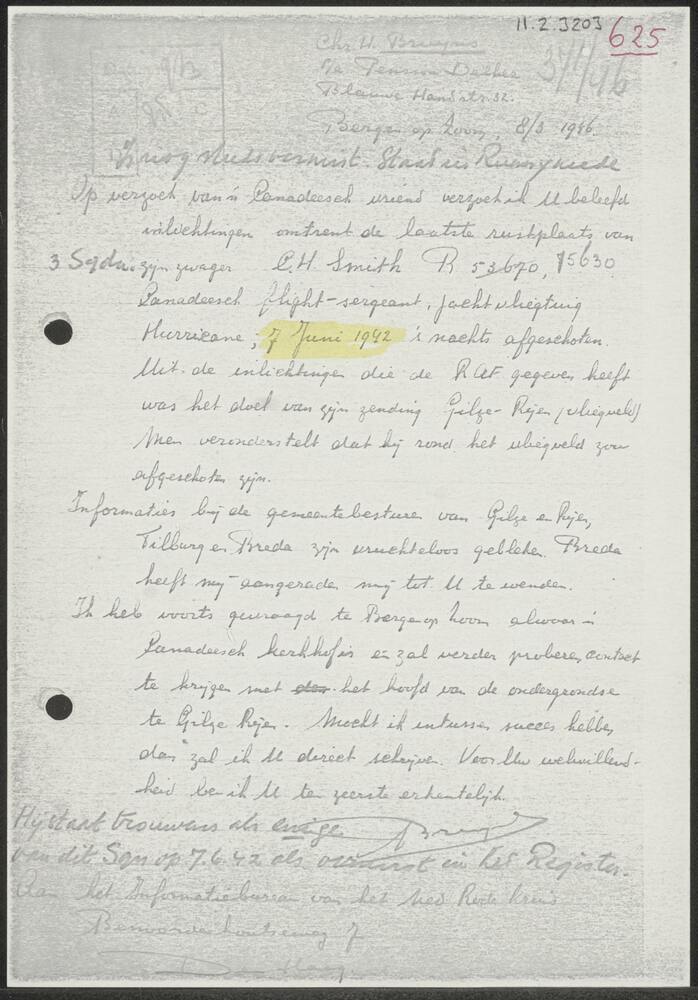 11.2.3203
625
Chr. H. Bruyns
p/a Pension Dekker
371/46
Blauwe Handstr. 32.
Bergen op Zoom, 8/3 1946
Is nog steeds vermist. Staat in Runnymede
Op verzoek van 'n Canadeesch vriend verzoek ik U beleefd
inlichtingen omtrent de laatste rustplaats van
3 Sqdn. zijn zwager C.H. Smith R 53670, 75630
Canadeesch flight-sergeant, jachtvliegtuig
Hurricane, 7 Juni 1942 's nachts afgeschoten.
Uit de inlichtingen die de RAF gegeven heeft
was het doel van zijn zending Gilze-Rijen (vliegveld)
Men veronderstelt dat hij rond het vliegveld zou
afgeschoten zijn.
Informaties bij de gemeentebesturen van Gilze en Rijen,
Tilburg en Breda zijn vruchteloos gebleken. Breda
heeft mij aangeraden mij tot U te wenden.
Ik heb voorts gevraagd te Bergen op Zoom alwaar 'n
Canadeesch kerkhof is en zal verder proberen contact
te krijgen met het hoofd van de ondergrondse
te Gilze Rijen. Mocht ik intussen succes hebben
dan zal ik U direct schrijven. Voor Uw welwillend-
heid ben ik U ten zeerste erkentelijk.
Hij staat trouwens als enige
van dit Sqn op 7.6.42 als vermist in het Register.
Aan het Informatiebureau van het Ned Rode Kruis
Benoordenhoutseweg 7
Den Haag